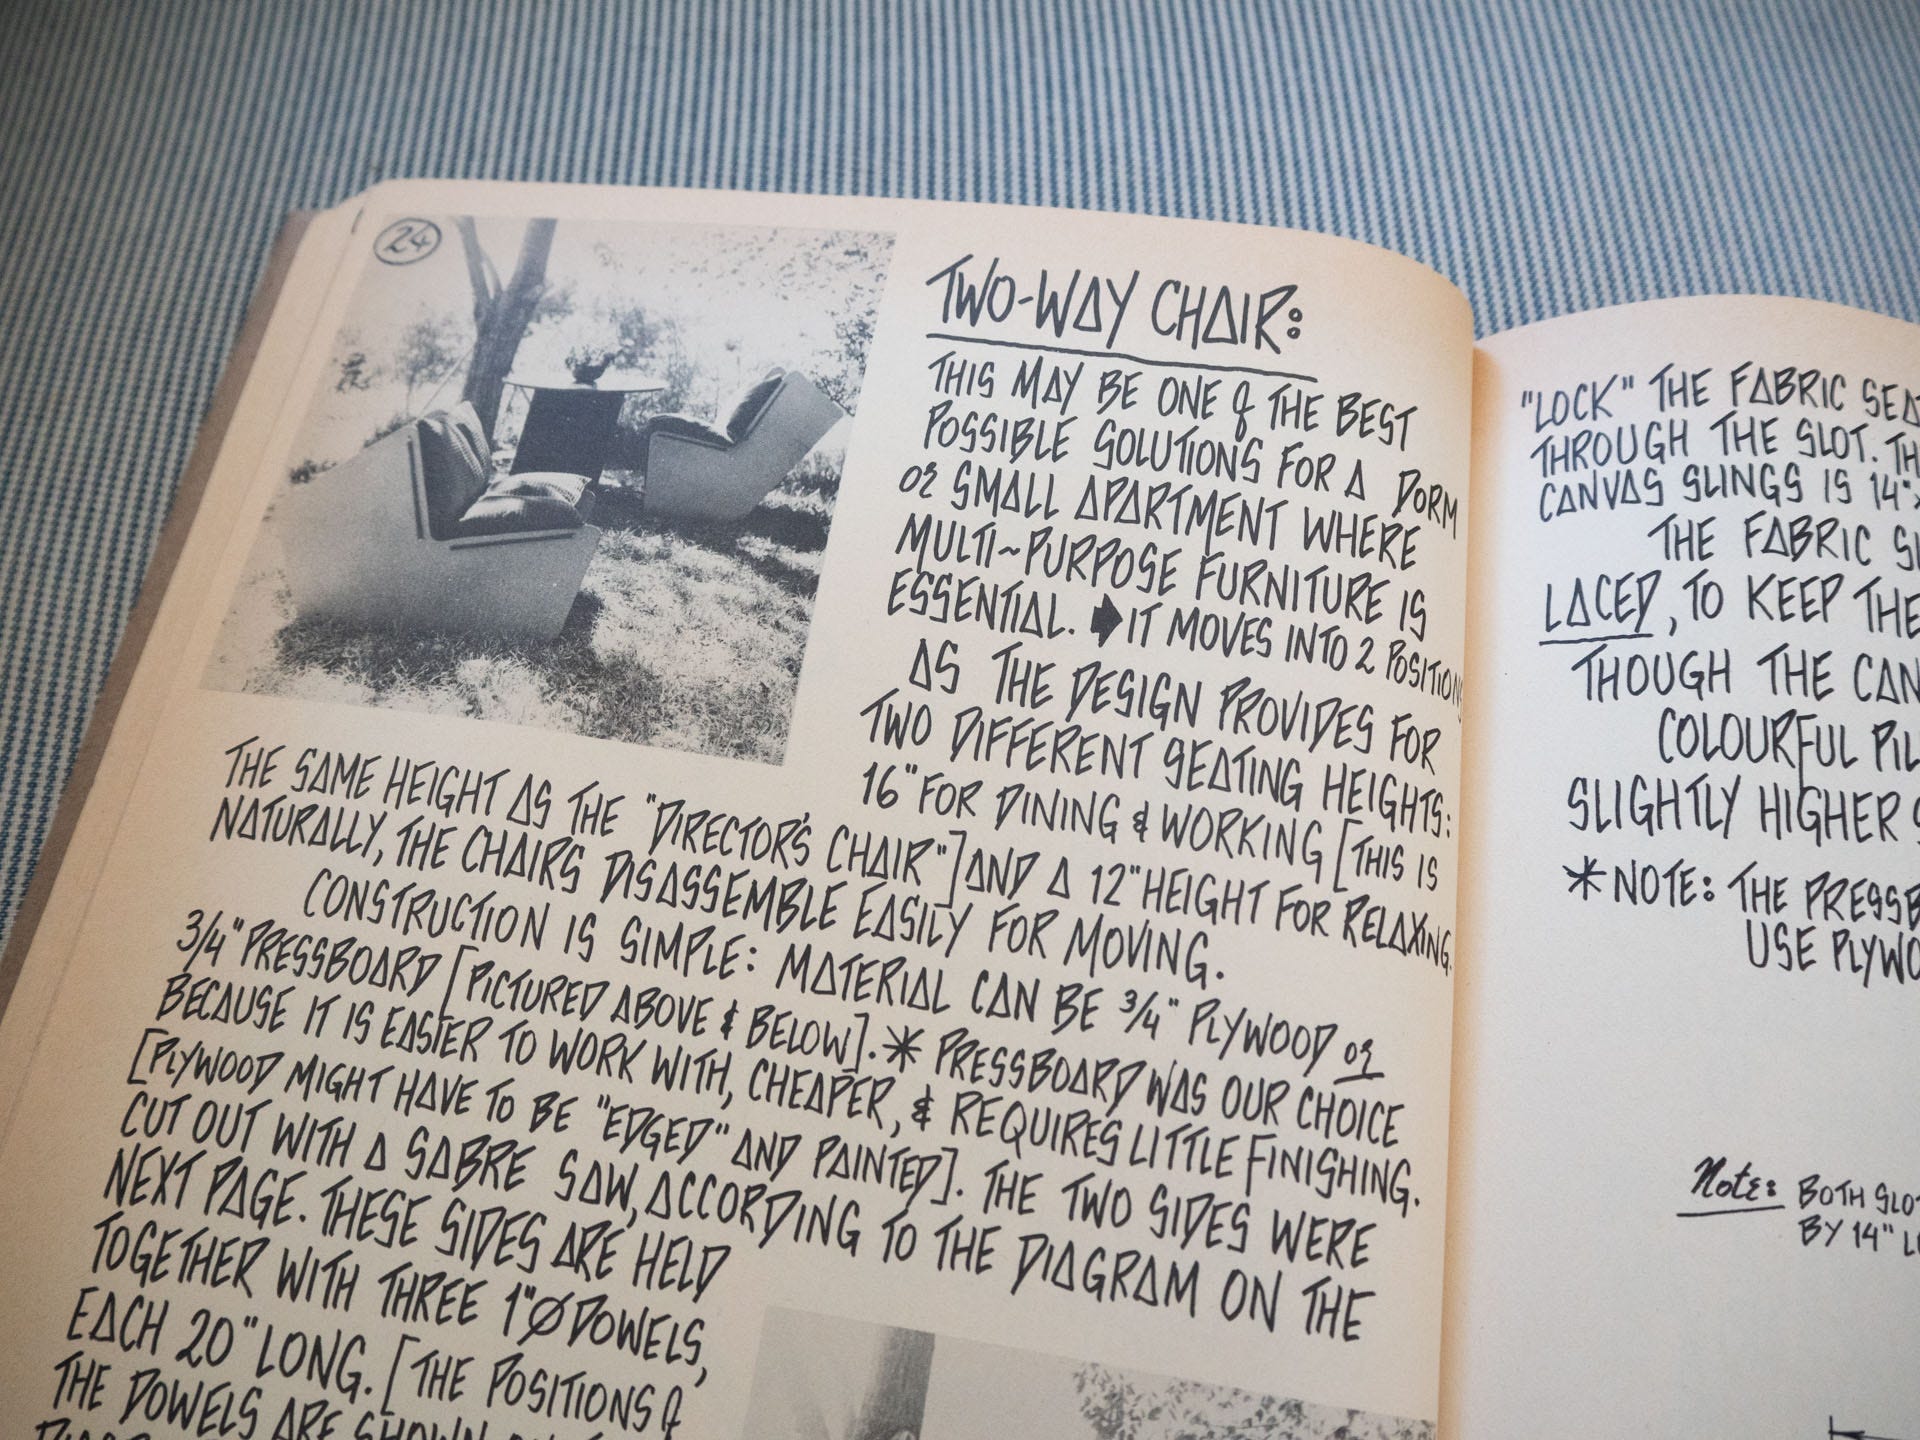 24
TWO-WAY CHAIR:
THIS MAY BE ONE of THE BEST
POSSIBLE SOLUTIONS FOR A DORM
or SMALL APARTMENT WHERE
MULTI~PURPOSE FURNITURE IS
ESSENTIAL. ➧IT MOVES INTO 2 POSITIONS
AS THE DESIGN PROVIDES FOR
TWO DIFFERENT SEATING HEIGHTS:
16" FOR DINING & WORKING [THIS IS
THE SAME HEIGHT AS THE "DIRECTOR'S CHAIR"] AND A 12" HEIGHT FOR RELAXING.
NATURALLY, THE CHAIRS DISASSEMBLE EASILY FOR MOVING.
CONSTRUCTION IS SIMPLE: MATERIAL CAN BE 3/4" PLYWOOD or
3/4" PRESSBOARD [PICTURED ABOVE & BELOW].* PRESSBOARD WAS OUR CHOICE
BECAUSE IT IS EASIER TO WORK WITH, CHEAPER, & REQUIRES LITTLE FINISHING.
[PLYWOOD MIGHT HAVE TO BE "EDGED" AND PAINTED]. THE TWO SIDES WERE
CUT OUT WITH A SABRE SAW, ACCORDING TO THE DIAGRAM ON THE
NEXT PAGE. THESE SIDES ARE HELD
TOGETHER WITH THREE 1"Ø DOWELS,
EACH 20" LONG. [THE POSITIONS of
THE DOWELS ARE SHOWN
"LOCK" THE FABRIC
THROUGH THE SLOT.
CANVAS SLINGS IS 14"
THE FABRIC
LACED, TO KEEP THE
THOUGH THE
COLOURFUL
SLIGHTLY HIGHER
*NOTE: THE
USE
Note: BOTH
BY 14"